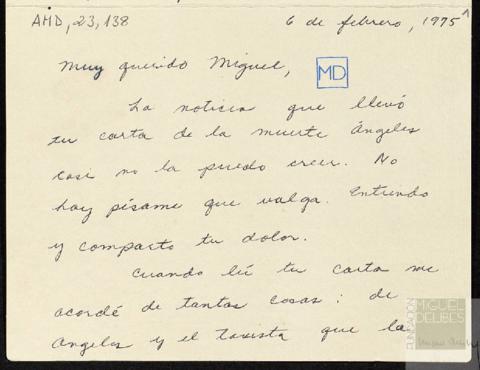 AMD, 23, 138
6 de febrero, 1975
Muy querido Miguel,
MD
La noticia que llevó
tu carta de la muerte Ángeles
casi no la puedo creer. No
hay pésame que valga. Entiendo
y comparto tu dolor.
Cuando leí tu carta me
acordé de tantas cosas: de
Angeles y el taxista que la
FUNDACIÓN
MIGUEL
DELIBES